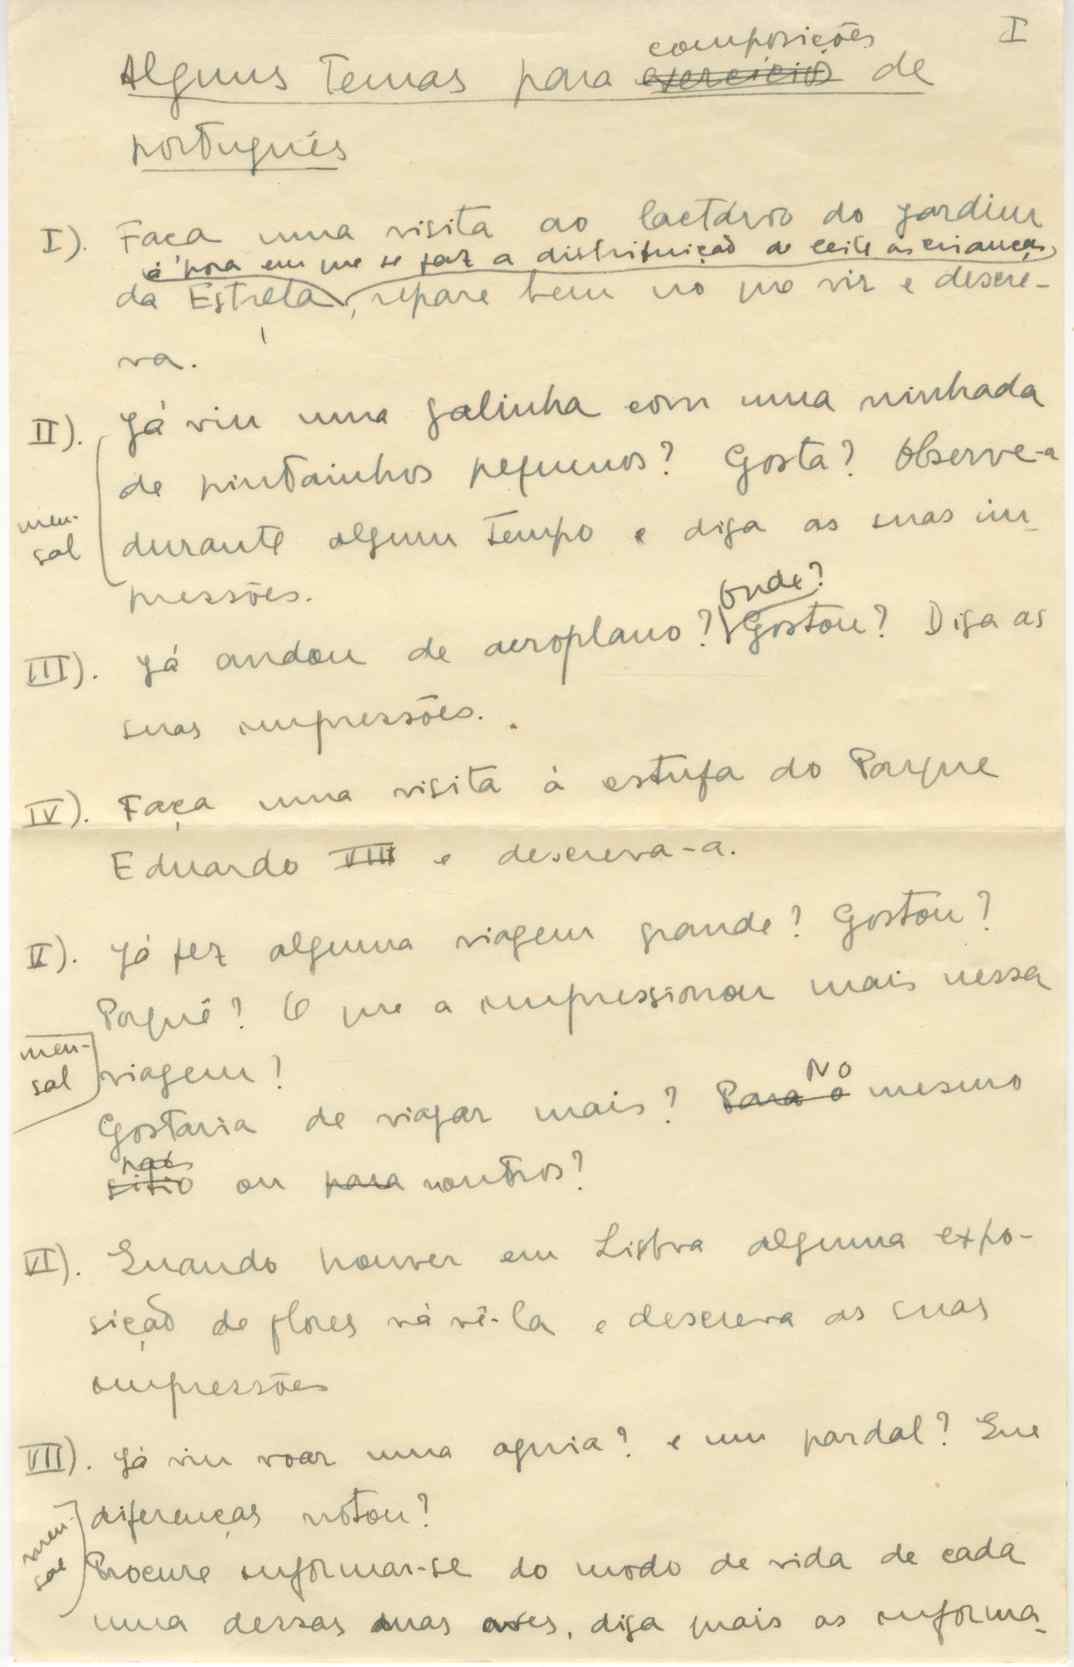 I
composições
Alguns temas para exercicios de
português
I). Faça uma visita ao lactário do jardim
à hora em que se faz a distribuição de leite às crianças,
da Estrela, repare bem no que vir e descre-
va.
II). Já viu uma galinha com uma ninhada
de pintainhos pequenos? Gosta? Observe-a
men-
sal
durante algum tempo e diga as suas im-
pressões.
Onde?
III). Já andou de aeroplano? Gostou? Diga as
suas impressões.
IV). Faça uma visita à estufa do Parque
Eduardo VIII e descreva-a.
V). Já fez alguma viagem grande? Gostou?
Porquê? O que a impressionou mais nessa
men-
sal
viagem?
No
Gostaria de viajar mais? Para o mesmo
país
sitio ou para noutros?
VI). Quando houver em Lisboa alguma expo-
sição de flores vá vê-la e descreva as suas
impressões
VII). Já viu voar uma aguia? e um pardal? Que
diferenças notou?
men-
sal
Procure informar-se do modo de vida de cada
uma dessas duas aves, diga quais as informa-